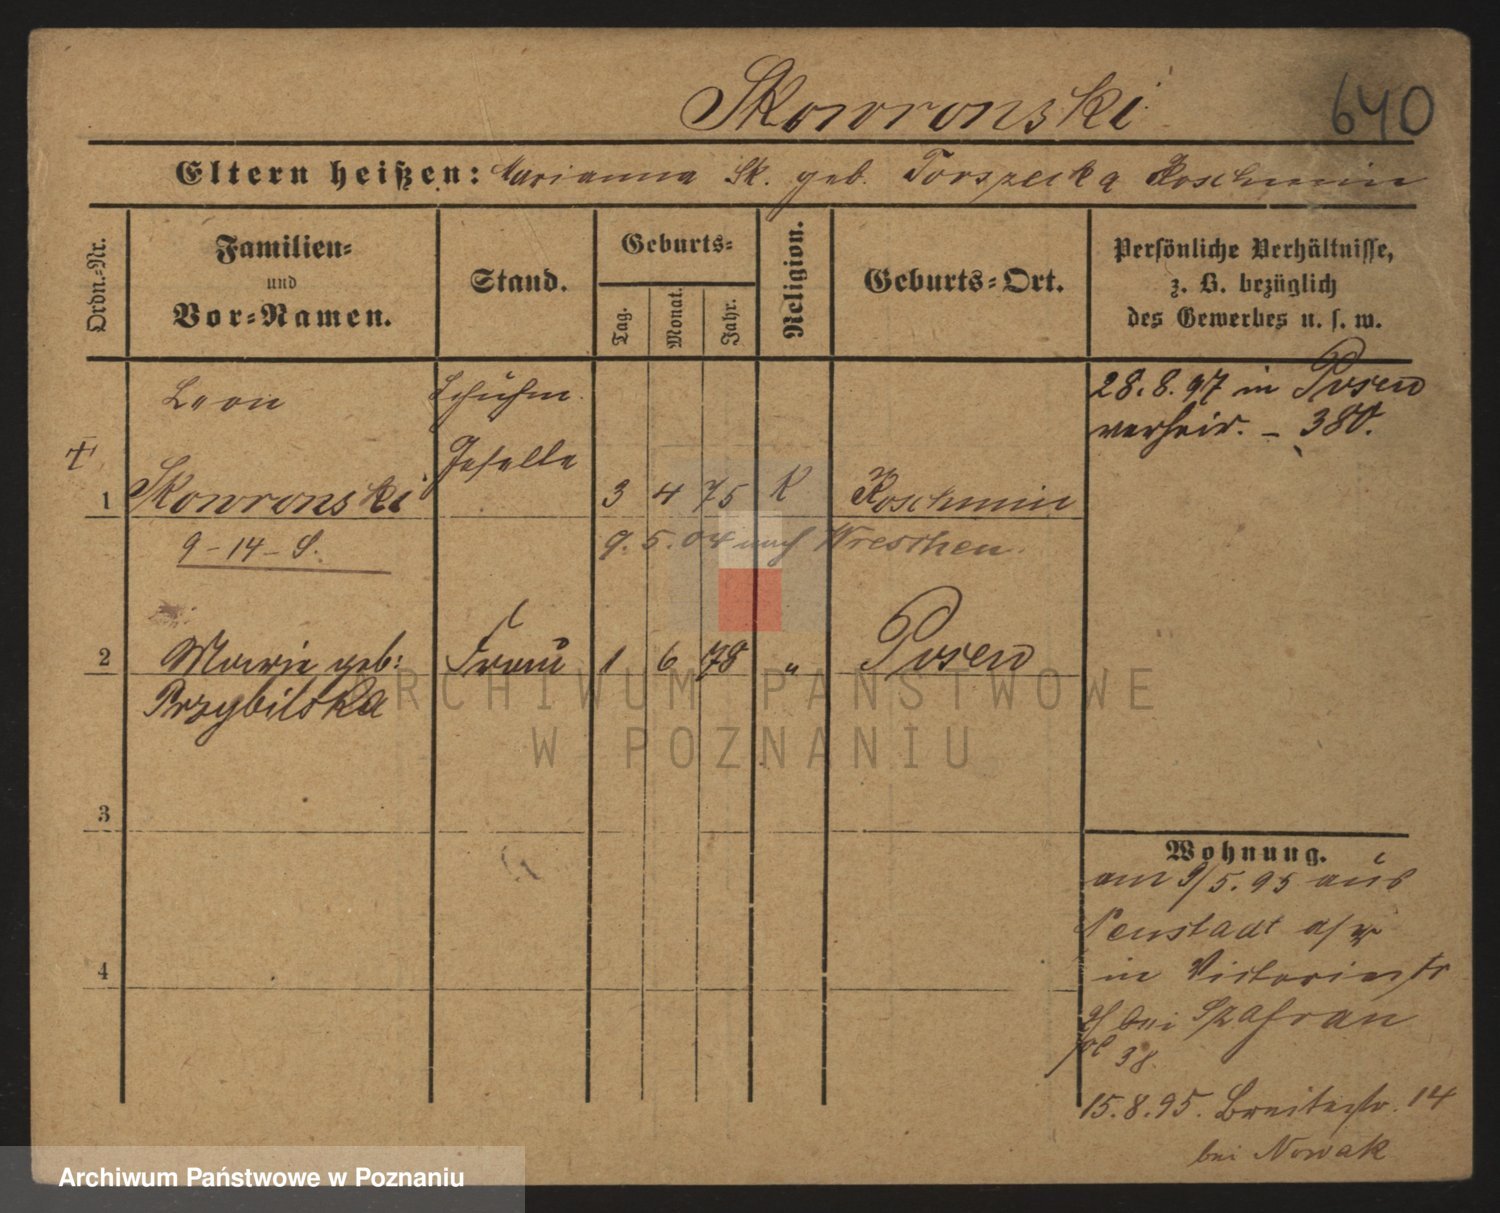 Skowronski
640
Eltern heißen: Marianna Sk. geb. Torszecka Koschmin
Ordn.-Nr.
Familien-
und
Vor-Namen.
Stand.
Geburts-
Tag.
Monat.
Jahr.
Religion.
Geburts-Ort.
Persönliche Verhältnisse,
z. B. bezüglich
des Gewerbes u. s. w.
Leon
Schuhm.
Geselle
1 Skowronski 3 4 75 K Koschmin
9-14-S.
9. 5. 04 nach Wreschen.
28.8.97 in Posen
verheir. - 380.
2 Marie geb: Frau 1 6 78 " Posen
Przybilska
3
4
Wohnung.
am 9/5.95 aus
Neustadt a/W
in Victoriastr
bei Szafran
38.
15.8.95. Breitestr. 14
bei Nowak
ARCHIWUM PAŃSTWOWE
W POZNANIU
Archiwum Państwowe w Poznaniu